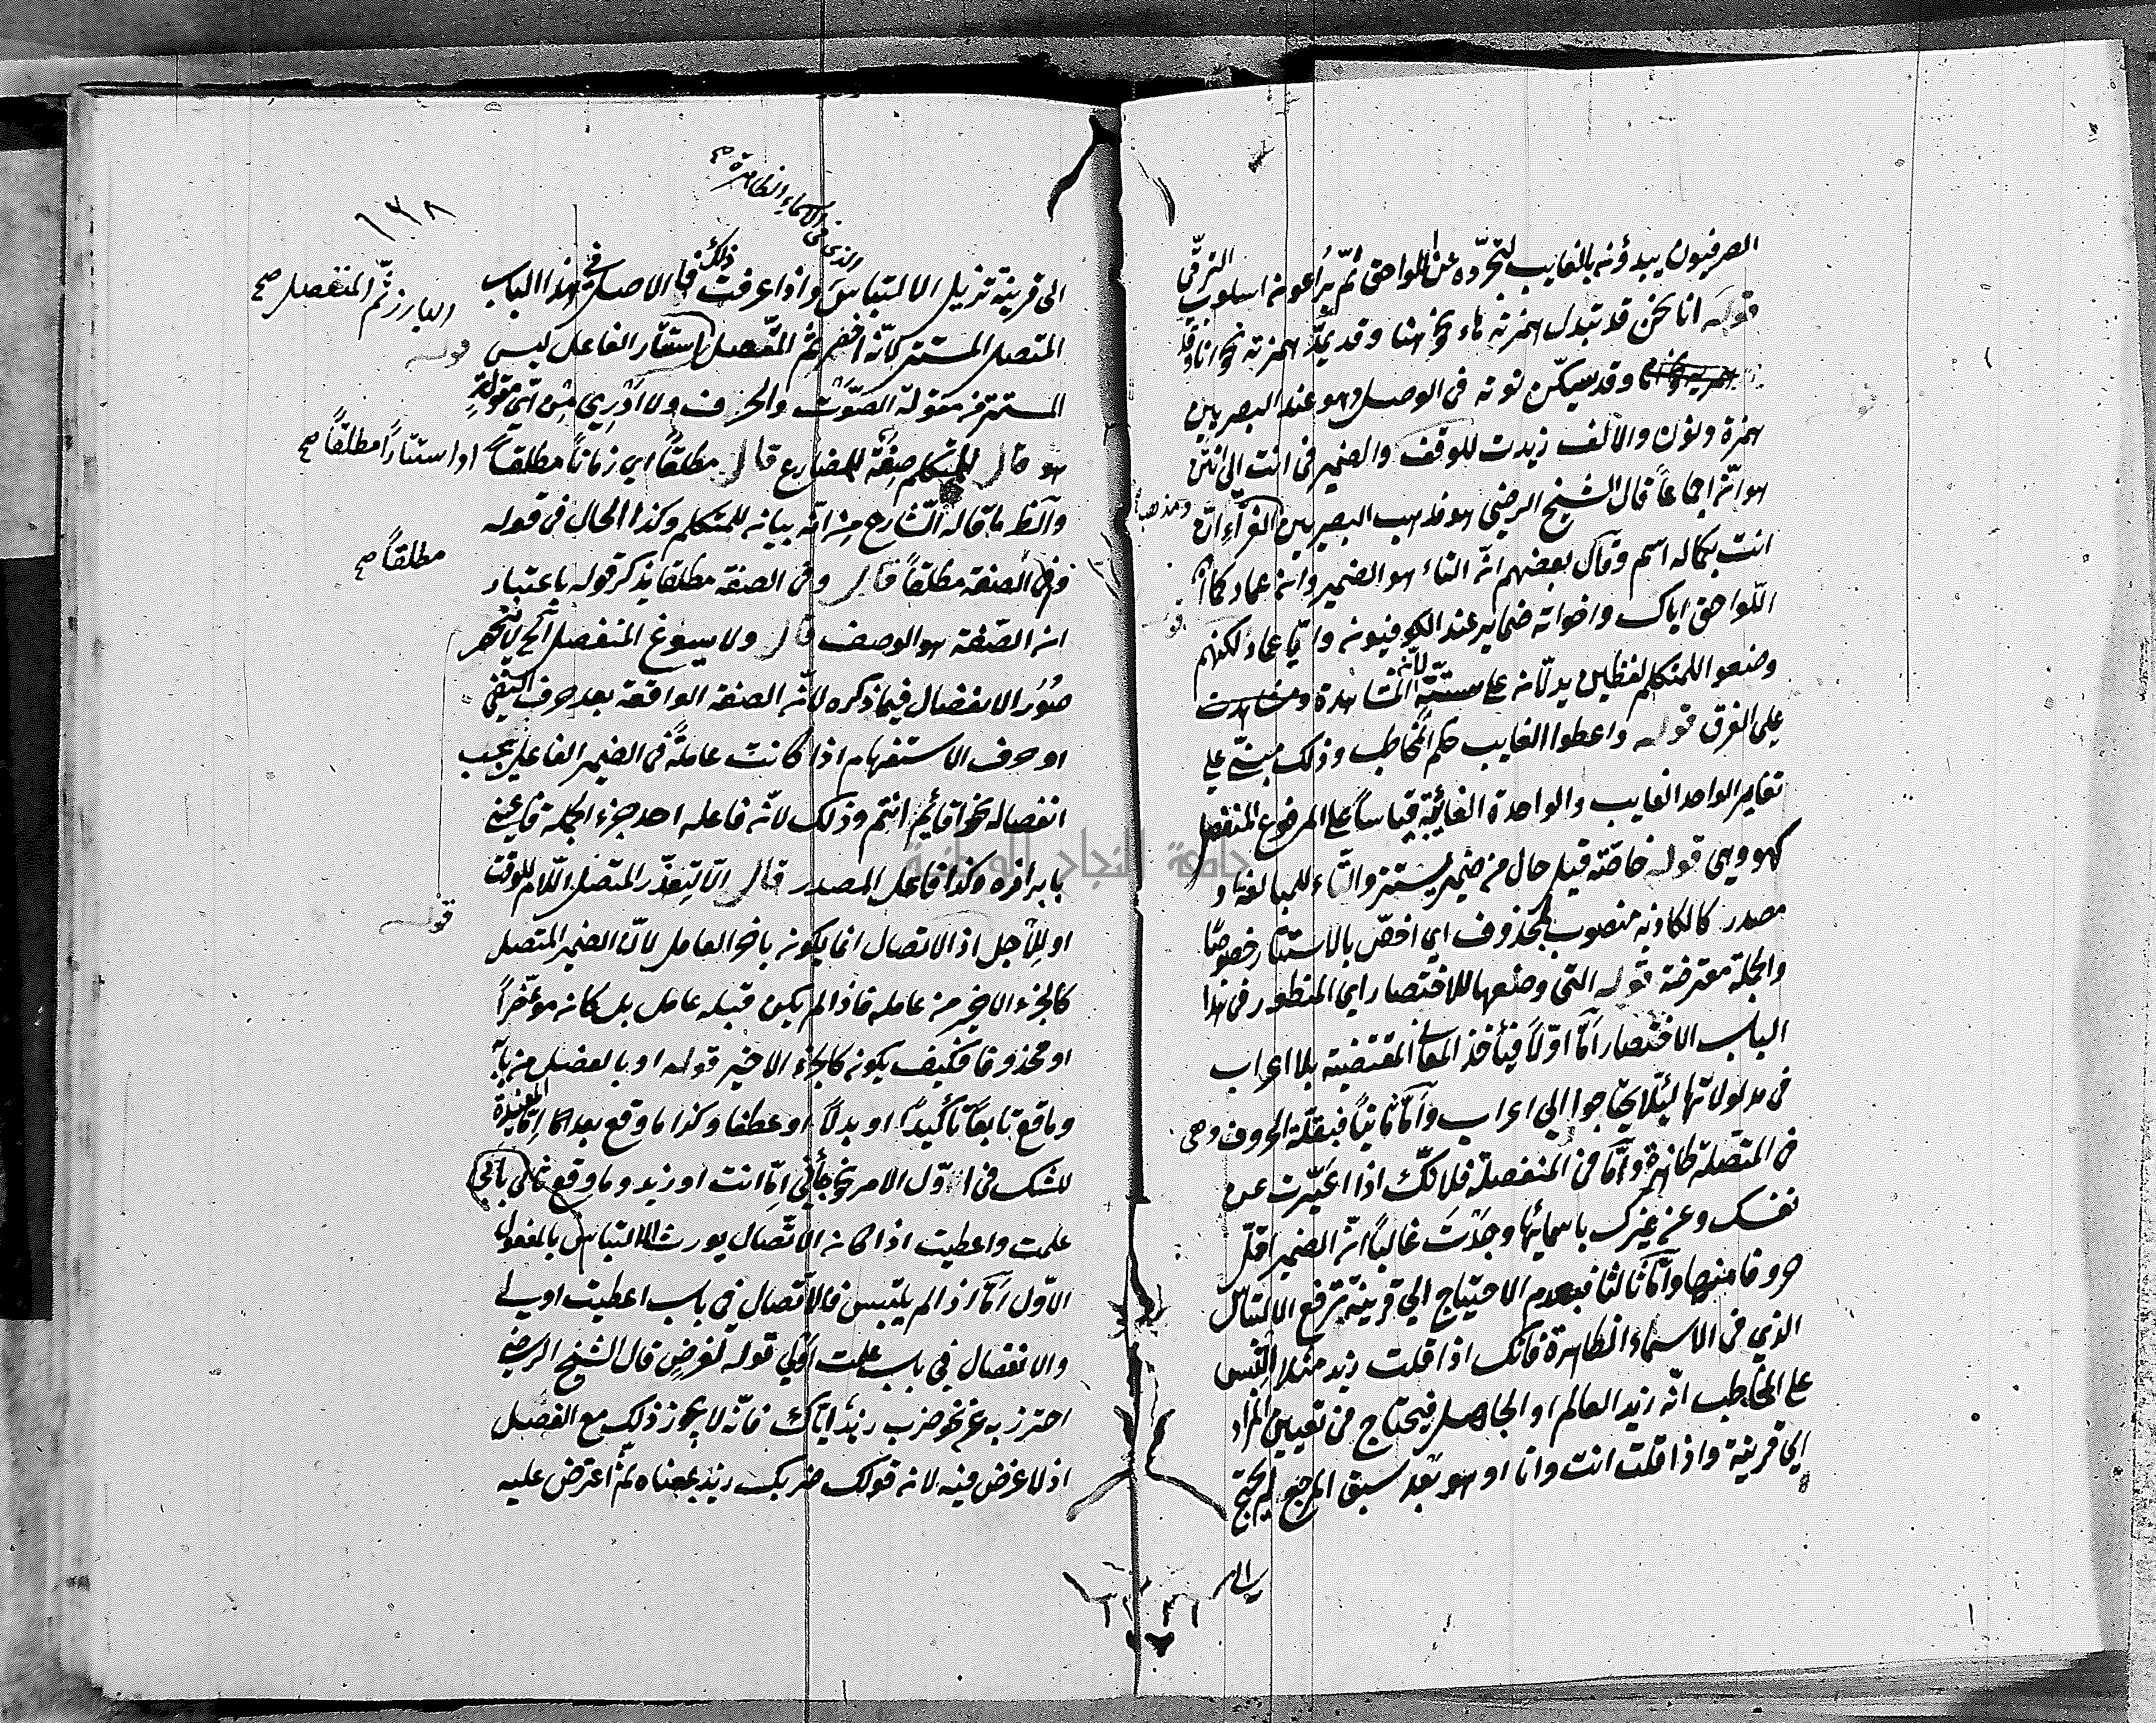 الصرفيون يبدؤنه بالغايب لتجرّده عن اللواحق ثمّ يُراعونه اسلوب الترقّي
قوله انا نحن قد تبدل همزته هاء نحو هنا وقد يمدّ همزته نحو انا وقد
وقد يسكّن نونه في الوصل وهو عند البصريين
همزة ونون والألف زيدت للوقف والضمير في انت الى انتن
هو انّ اجماعاً قال الشيخ الرضي هو مذهب البصريين ومذهب الفرّاء انّ
انت بكماله اسم وقال بعضهم انّ التاء هو الضمير وان عماد كما انّ
اللّواحق اياك واخواته ضماير عند الكوفيونه وايّا عماد لكنهم
وضعوا للمتكلم لفظين يدلّانه على ستّة لأنّ المشاهدة
على الفرق قوله واعطوا الغايب حكم المخاطب وذلك مبنيّ على
تغاير الواحد الغايب والواحدة الغائبة قياساً على المرفوع المنفصل
كهو وهي قوله خاصّة قيل حال من ضمير يستتر والتاء للمبالغة و
مصدر كالكاذبه منصوب بمحذوف اي اخصّ بالاستتار خصوصًا
والجملة معترضة قوله التي وضعها للاختصار اي المنظور في هذا
الباب الاختصار امّا اوّلاً فيأخذ المعاني المقتضية بلا اعراب
في مدلولاتها ليئلا يحتاجوا الى اعراب وامّا ثانياً فبقلّة الحروف وهي
في المتّصلة ظاهرة وامّا في المنفصلة فلانّك اذا عبّرت عن
نفسك وعن غيرك باسمائها وجَدْتَ غالباً انّ الضمير اقلّ
حروفا منها وامّا ثالثا فبعدم الاحتياج الى قرينة ترفع الالتباس
الذي في الاسماء الظاهرة فانّك اذا قلت زيد مثلا التبس
على المخاطب انّه زيد العالم او الجاهل فيحتاج في تعيين المراد
الى قرينة واذا قلت انت وانا او هو بعد سبق المرجع لم يحتج
الى
١٦٨
الذي في الاسماء الظاهرة صح
الى قرينة تزيل الالتباس واذا عرفت ذلك فالاصل في هذا الباب
البارز ثمّ المنفصل صح
المتصل المستتر لانّه اخصر ثمّ المتّصل استتار الفاعل ليس
قوله
المستتر من مقولة الصَّوْت والحرف ولا ادْرِي مِن ايّ مقولةٍ
هو قال للمتكلم صِفة للمضارع قال مطلقاً اي زماناً مطلقاً
او استتاراً مطلقاً صح
والظ ما قاله الشّارع من انّه بيانه للمتكلم وكذا الحال في قوله
وفي الصفة مطلقاً قال وفي الصفة مطلقا يذكر قوله باعتبار
مطلقاً صح
انه الصّفة هو الوصف قال ولا يسوغ المنفصل الخ لا تنحصر
صُوَر الانفصال فيما ذكره لانّه الصفة الواقعة بعد حرف النفي
او حرف الاستفهام اذا كانت عاملةً في الضمير الفاعل يجب
انفصاله نحو اقائم انتم وذلك لانّه فاعله احد جزء الجملة فاعتني
بابرازه وكذا فاعل المصدر قال الّا لتعذّر المتصل اللّام للوقت
قوله
او للأجل اذ الاتصال انما يكونه باخر العامل لانّ الضمير المتصل
كالجزء الاخير من عامله فاذا لم يكن قبله عامل بل كانه مؤخّراً
او محذوفا فكيف يكونه كالجزء الاخير قوله او بالفصل من بابه
وما وقع تابعاً تأكيداً او بدلاً او عطفا وكذا ما وقع بعد امّا المفيدة
للشك في اوّل الامر نحو جأني امّا انت او زيد وما وقع ثاني بابي
علمت واعطيت اذا كانه الاتّصال يورث الالتباس بالمفعول
الاوّل امّا اذا لم يلتبس فالاتّصال في باب اعطيت اولى
والانفصال في باب علمت اولى قوله لغرضٍ قال الشيخ الرضي
احترز به عن نحو ضرب زيد اياك فانّه لا يجوز ذلك مع الفصل
اذ لا غرض فيه لانه قولك ضربك زيد بمعناه ثمّ اعترض عليه